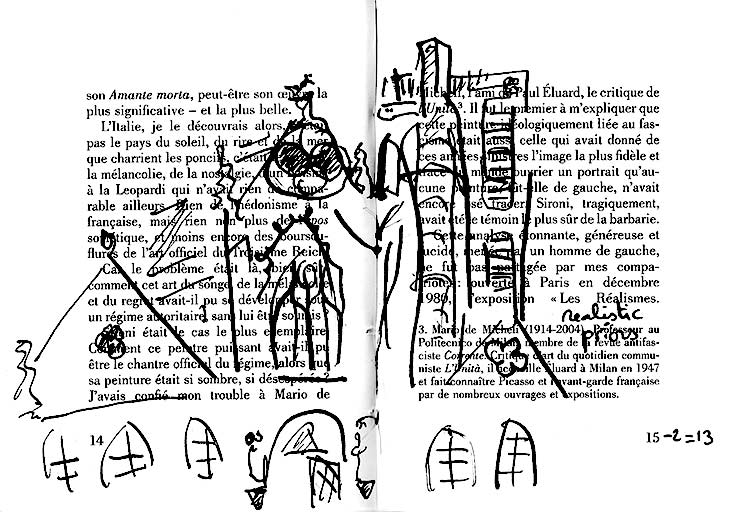 son Amante morta, peut-être son la
plus significative – et la plus belle.
L'Italie, je le découvrais alors,
pas le pays du soleil, du rire et de la mer
que charrient les poncifs, c'était
la mélancolie, de la nostalgie,
à la Leopardi qui n'avait rien de
rable ailleurs. Rien de l'hédonisme à la
française, mais rien non plus de
et moins encore des
flures de l'art officiel du Troisième Reich.
Car le problème était là, bien
comment cet art du songe de la
et du regret avait-il pu se développer sous
un régime autoritaire, sans lui être soumis ?
était le cas le plus exemplaire.
Comment ce peintre puissant avait-il pu
être le chantre officiel du régime, alors que
sa peinture était si sombre, si désespérée ?
J'avais confié mon trouble à Mario de
14
Micheli, l'ami de Paul Éluard, le critique de
l'Unità³. Il fut le premier à m'expliquer que
cette peinture idéologiquement liée au fas-
cisme était aussi celle qui avait donné de
ces années sinistres l'image la plus fidèle et
tracé du monde ouvrier un portrait qu'au-
cune peinture, fût-elle de gauche, n'avait
encore osé tracer. Sironi, tragiquement,
avait été le témoin le plus sûr de la barbarie.
Cette analyse étonnante, généreuse et
lucide, menée par un homme de gauche,
ne fut pas partagée par mes compa-
triotes : ouverte à Paris en décembre
1980, l'exposition « Les Réalismes.
realistic
priors
3. Mario de Micheli (1914-2004). Professeur au
Politecnico de Milan, membre de la revue antifas-
ciste Corrente. Critique d'art du quotidien commu-
niste L'Unità, il accueille Éluard à Milan en 1947
et fait connaître Picasso et l'avant-garde française
par de nombreux ouvrages et expositions.
15 -2=13